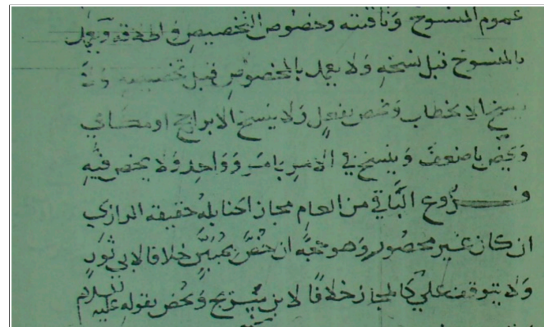 عموم المنسوخ وتأقيته وخصوص التخصيص في اطلاقه ويعمل
بالمنسوخ قبل نسخه ولا يعمل بالمخصوص قبل تخصيصه ولا
ينسخ الا بخطاب ويخص بفعل ولا ينسخ الا براجح او مساوي
ويخص باضعف وينسخ في الامر بامر وواحد ولا يخص فيه
فروع الباقي من العام مجاز احنابله حقيقه الرازي
ان كان غير محصور وهو حجه ان خص بمبين خلافا لابي ثور
ولا يتوقف علي كالمجاز خلافا لابن سريج ويخص بقوله عليه السلام